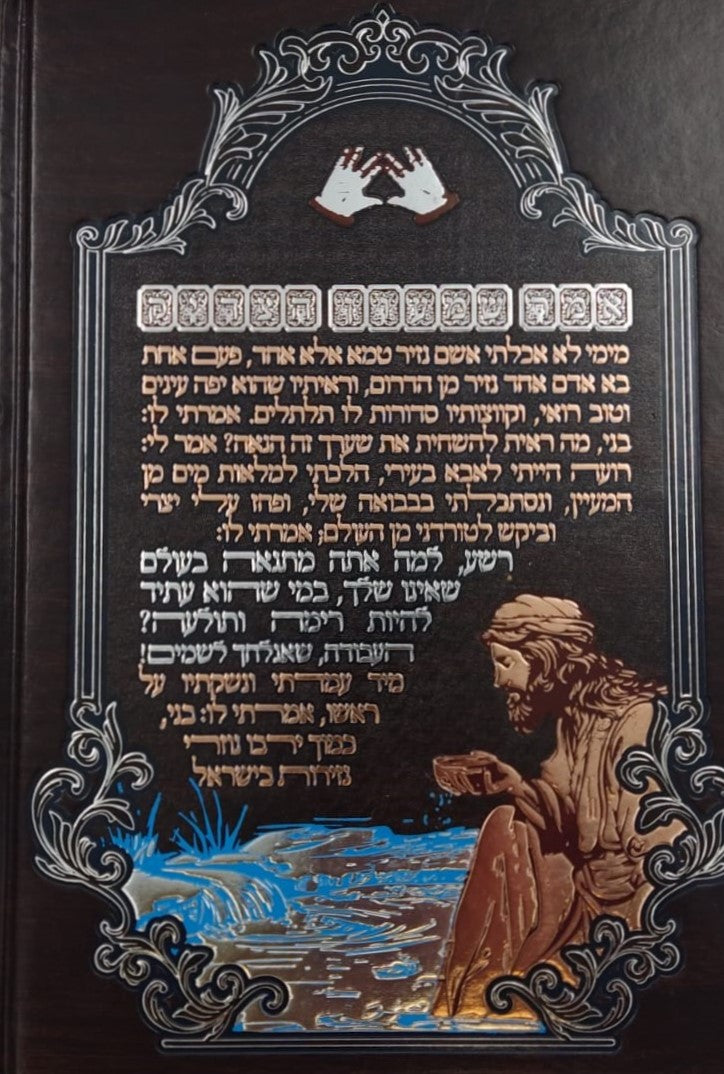 אמר שמעון הצדיק
מימי לא אכלתי אשם נזיר טמא אלא אחד, פעם אחת
בא אדם אחד נזיר מן הדרום, וראיתיו שהוא יפה עינים
וטוב רואי, וקווצותיו סדורות לו תלתלים. אמרתי לו:
בני, מה ראית להשחית את שערך זה הנאה? אמר לי:
רועה הייתי לאבא בעירי, הלכתי למלאות מים מן
המעיין, ונסתכלתי בבבואה שלי, ופחז עלי יצרי
וביקש לטורדני מן העולם; אמרתי לו:
רשע, למה אתה מתגאה בעולם
שאינו שלך, במי שהוא עתיד
להיות רימה ותולעה?
העבודה, שאגלחך לשמים!
מיד עמדתי ונשקתיו על
ראשו, אמרתי לו: בני,
כמוך ירבו נוזרי
נזירות בישראל